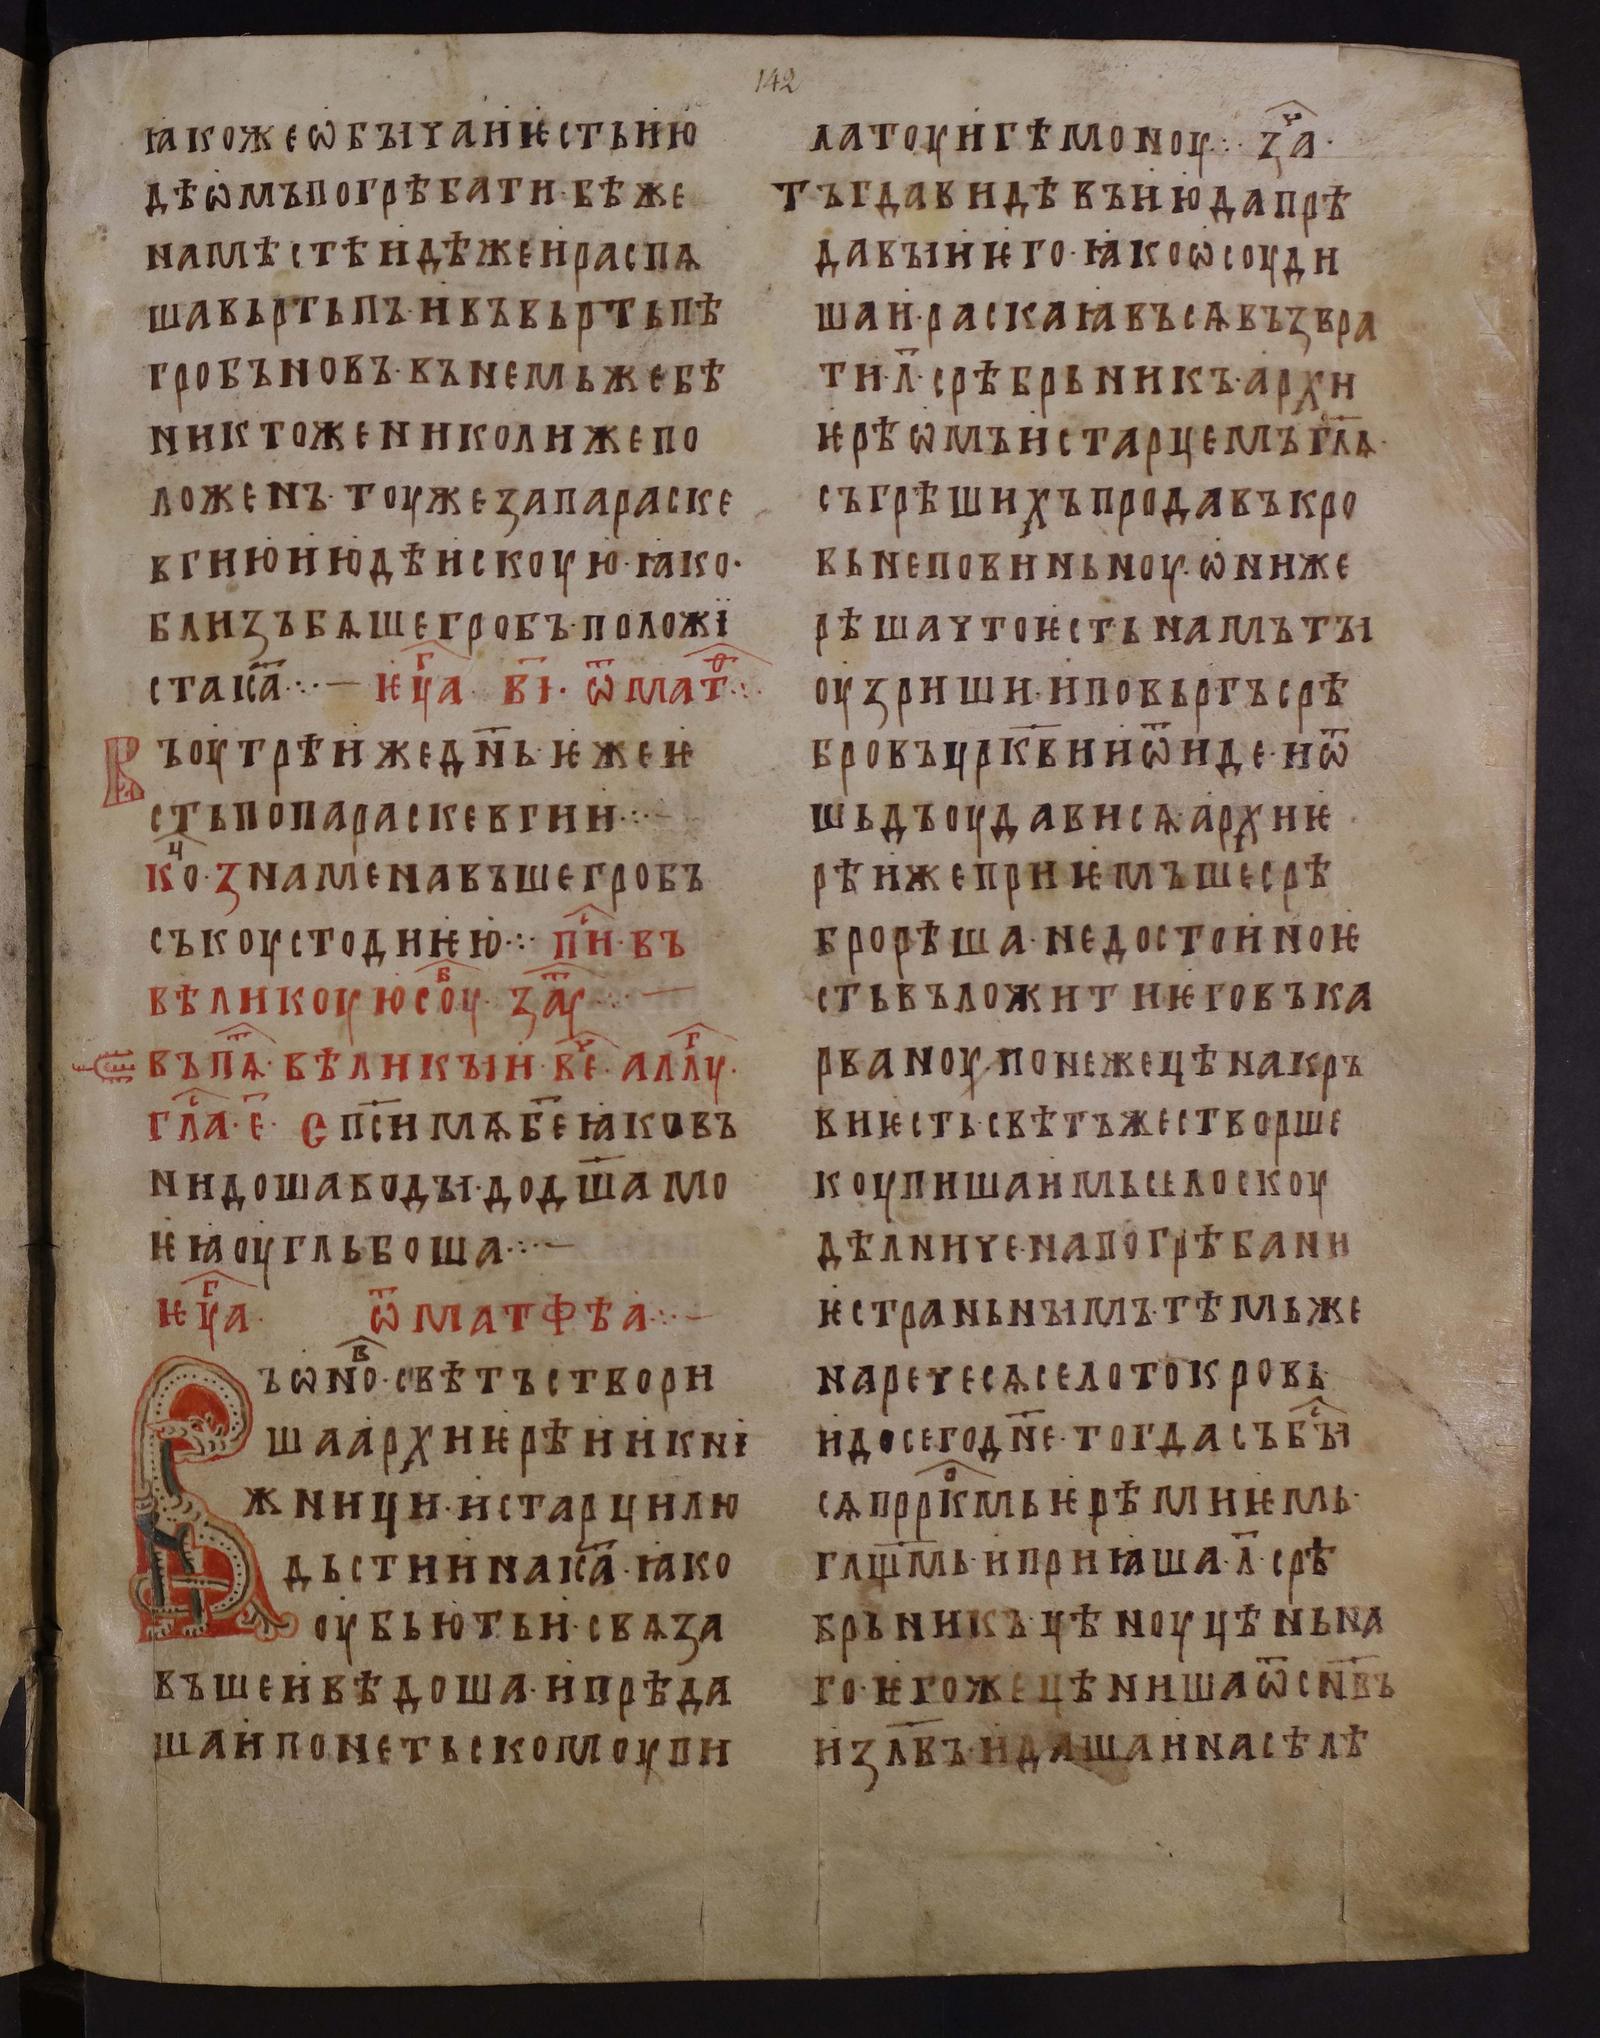 142
ꙗкожеѡбꙑчаиѥстьию
дѣѡмъпогрѣбати·бѣже
намѣстѣидѣжеираспѧ
шавьртьпъ·ивъвьртьпѣ
гробъновъ·вънемьжебѣ
никтоженколижепо
ложенъ·тоужезапараске
вгиюиюдѣискоую·ꙗко·
близъбѧшегробъ·положї
стаіс҃а·:·— ѥѵⷢ҇а в҃і· ѿматⷴ҇·:·
Въоутрѣижедн҃ь·ѥжеѥ
стьпопараскевгии·:·—
коⷰ҇·знаменавъшегробъ
съкоустодиѥю·:· пⷭ҇и·въ
вѣликоуюсоуⷠ҇· заⷹ҇·:·—
въпⷮ҇ѧ·вѣликꙑи·веⷱ҇·аллуⷢ҇·
глаⷭ҇·е҃· Сп҃симѧб҃еꙗковъ
нидошаводꙑ·додш҃амо
ѥꙗоугльбоша·:·—
ѥѵⷢ҇а ѿматфѣа·:·—
Въѡноⷡ҇·свѣтъствори
шаархиѥрѣиикні
жници·истарцилю
дьстиинаіс҃а·ꙗко
оубьютьи·свѧза
въшеивѣдоша·ипрѣда
шаипонетьскомоупи
латоуигѣмоноу·:· заⷱ҇·
тъгдавидѣвъиюдапрѣ
давꙑиѥго·ꙗкоѡсоуди
шаи·раскаꙗвъсѧвъзвра
ти·л҃·срѣбрьникъ·архи
ѥрѣѡмъистарцемъгл҃ѧ·
съгрѣшихъпродавъкро
вьнеповиньноу·ѡниже
рѣшачтоѥстьнамътꙑ
оузриши·иповьргъсрѣ
бровъцрк҃виѿиде·иѿ
шьдъоудависѧ·архиѥ
рѣижеприѥмъшесрѣ
брорѣша·недостоиноѥ
стьвъложитиѥговъка
рваноу·понежецѣнакръ
виѥсть·свѣтъжестворше
коупишаимьселоскоу
дѣлниче·напогрѣбани
ѥстраньнꙑмъ·тѣмьже
наречесѧселотокровь
идосегодн҃е·тогдасъбꙑⷭ҇
сѧпрⷪ҇ркмьѥрѣмиѥмь·
глщ҃мь·иприꙗша·л҃·срѣ
брьникъ·цѣноуцѣньна
го·ѥгожецѣнишаѿсн҃въ
изл҃въ·идашаинаселѣ